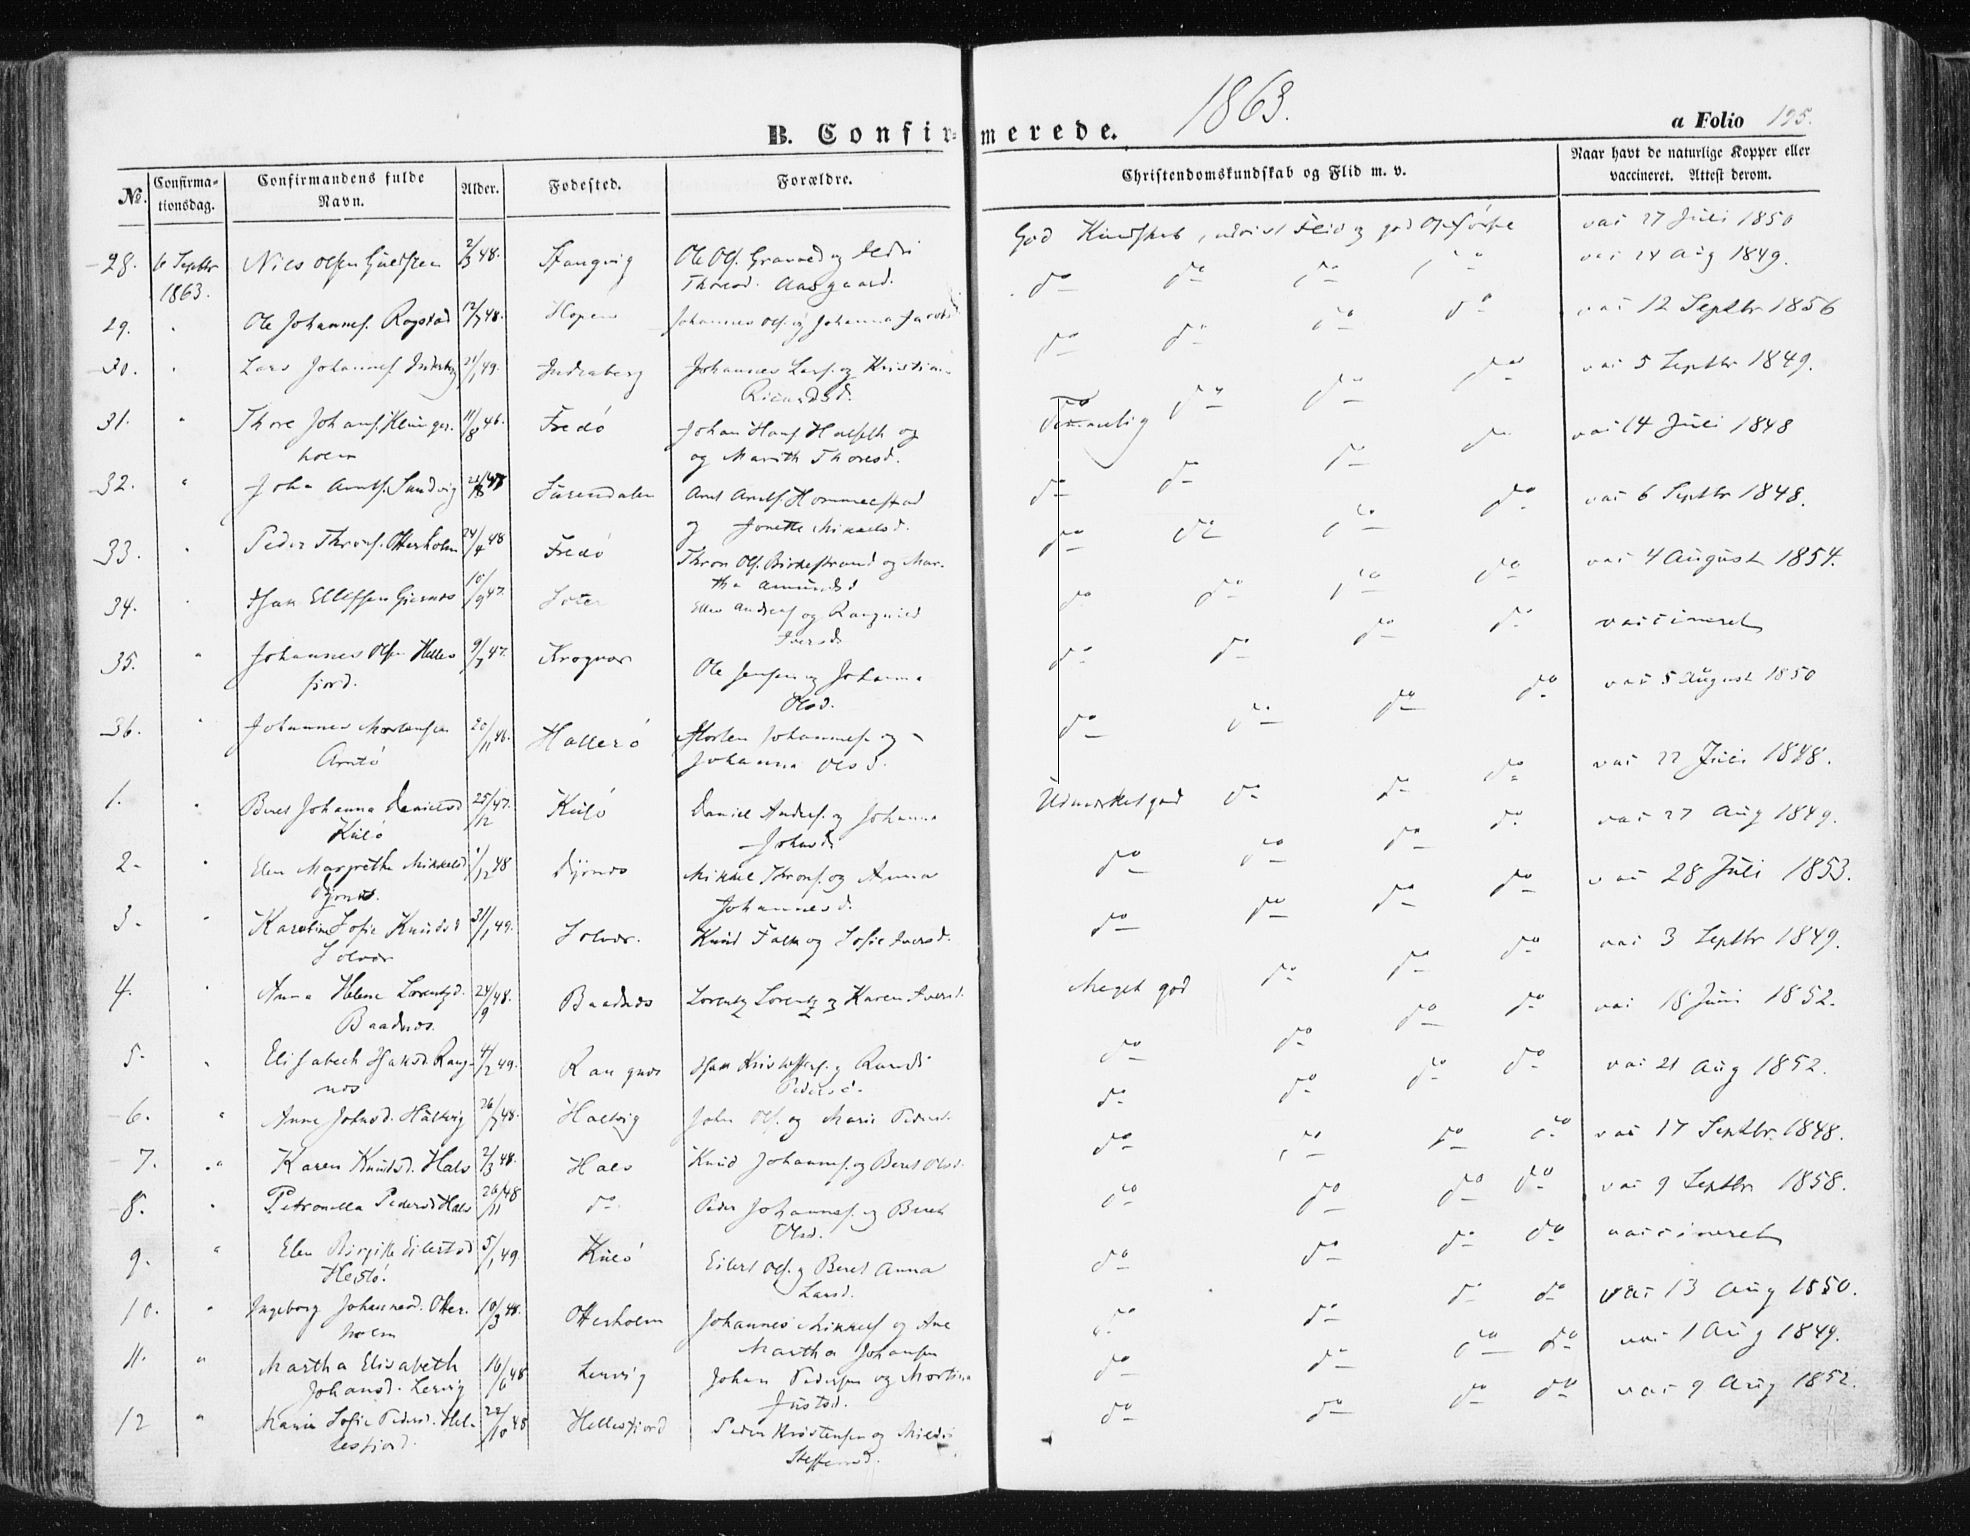 1863.
B. Confirmerede.
a Folio 195.
No. Confirmationsdag. Confirmandens fulde Navn. Alder. Fødested. Forældre. Christendomskundskab og Flid m. v. Naar havt de naturlige Kopper eller vaccineret. Attest derom.
28. 6 Septbr 1863. Nils Olsen 2/3 48. Stangvig Ole Ols. og Thoresd. Aasgaard. God Kundskab, udvist Flid og god Opførsel vac 27 Juli 1850
29. " Ole Johannes. Rogstad 12/7 48. Hopen Johannes Ols. og Johanna do do do do vac 24 Aug 1849.
30. " Lars Johannes. 21/1 49. Inderberg Johannes Lars. og Ricardsd. do do do do vac 12 Septbr 1856
31. " Thore Johans. Klungerholm 11/8 46. Fredø Johan Hans. Halseth og og Marith Thoresd. Temmelig do do do vac 5 Septbr 1849.
32. " John Arnts. Sandvig Surendalen Arnt Arnts. Hommelstad og Jonette Mikkelsd. do do do do vac 14 Juli 1848
33. " Peder Throns. Otterholm 24/4 48 Fredø Thron Ols. Birkestrand og Martha Amundsd do do do do vac 6 Septbr 1848.
34. " Isak Ellefsen 10/9 47. Ellev Andreas. og Rangnild Iversd do do do do vac 4 August 1854.
35. " Johannes Olsen Hellesfjord. 9/7 47. Krogvar Ole Jensen og Johanna Olsd. do do do do vaccineret
36. " Johannes Mortensen 20/11 46. Hallerø Morten Johannes. og Johanna Olsd. do do do do vac 5 August 1850
1. " Beret Johanna Danielsd Kulø 25/12 47. Kulø Daniel Andreas. og Johanna Johnsd. Udmærket god do do do vac 22 Juli 1848.
2. " Elen Margrethe Mikkelsd. Dyrnes. 1/12 48 Dyrnes Mikkel Throns. og Anna Johannesd. do do do do vac 27 Aug 1849.
3. " Karoline Sofie Knudsd Solvær 31/1 49. Solvær. Knud Falk og Sofie Iversd. do do do do vac 28 Juli 1853.
4. " Anna Helene Lorentzd. Baadnes. 24/9 48. Baadnes Lorentz Lorentz. og Karen Iversd. Meget god do do do vac 3 Septbr 1849.
5. " Elisabeth Isaksd. Rangnes 4/2 49. Rangnes Isak Kristoffers. og Randi Pedersd. do do do do vac 18 Juni 1852.
6. " Anne Johnsd. Haltvig 26/7 48. Haltvig John Ols. og Marie Pedersd. do do do do vac 21 Aug 1852.
7. " Karen Knudsd. Hals 2/3 48. Hals Knud Johannes. og Beret Olsd. do do do do vac 17 Septbr. 1848.
8. " Petronella Pedersd Hals 26/11 48 do Peder Johannes. og Beret Olsd. do do do do vac 9 Septbr 1858.
9. " Elen Birgitte Eilertsd Hestø. 5/1 49. Kulø Eilert Ols. og Beret Anna Larsd. do do do do vaccineret
10. " Ingeborg Johannesd. Otterholm 10/3 48. Otterholm Johannes Mikkels. og Ane Martha Johansen do do do do vac 13 Aug 1850.
11. " Martha Elisabeth Johansd. Lervig 16/6 48 Lervig Johan Pedersen og Mortina Justsd. do do do do vac 1 Aug 1849.
12 " Marie Sofie Pedersd. Hellesfjord. 22/10 48 Hellesfjord Peder Kristensen og Steffensd. do do do do vac 9 Aug 1852.